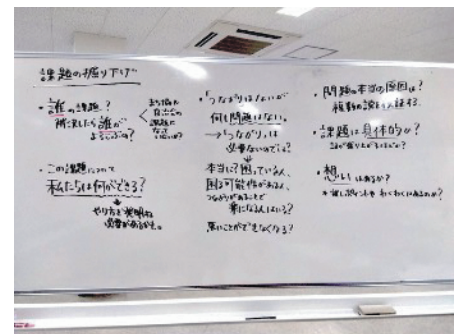 課題の掘り下げ
・誰の課題?
解決したら誰が
よろこぶの?
・この課題について
私たちは何ができる?
やり方を発明する
必要があるかも。
・「つながりはないが
何も問題はない。
→「つながり」は
必要ないのでは?
本当に?困っている人、
困る可能性がある人、
つながりがあることで
楽になる人はいる?
悪いことができなくなる?
・問題の本当の原因は?
複数の説を検証する。
・課題は具体的か?
・想いはあるか?